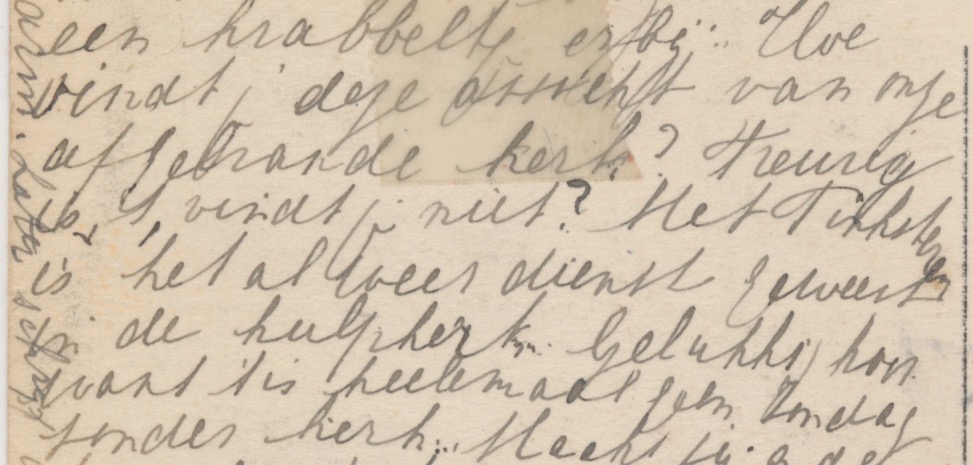 een krabbeltje erbij. Hoe
vindt j deze ansicht van onze
afgebrande kerk? Treurig
is 't, vindt j niet? Met Pinksteren
is het al weer dienst geweest
in de hulpkerk. Gelukkig hoor
want 't is heelemaal geen Zondag
zonder kerk.